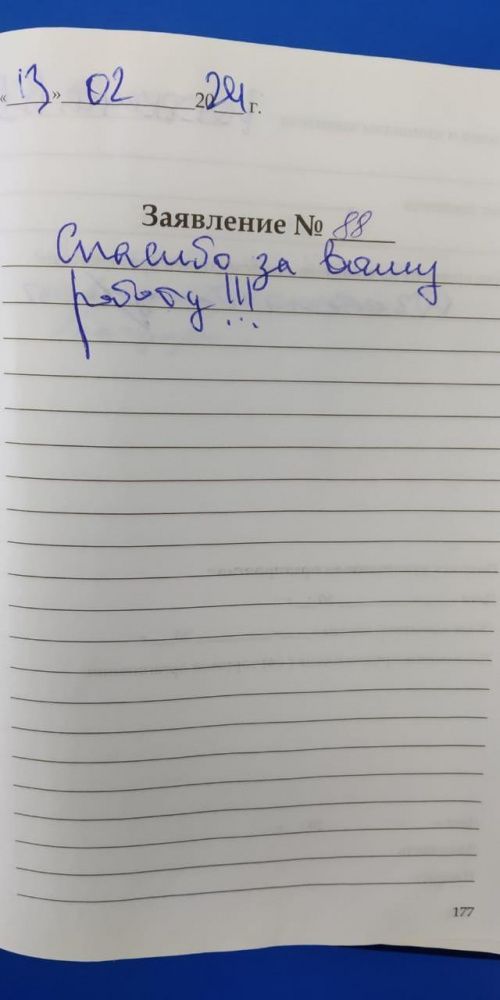 «13» 02 2024 г.
Заявление № 88
Спасибо за вашу
работу!!!
177